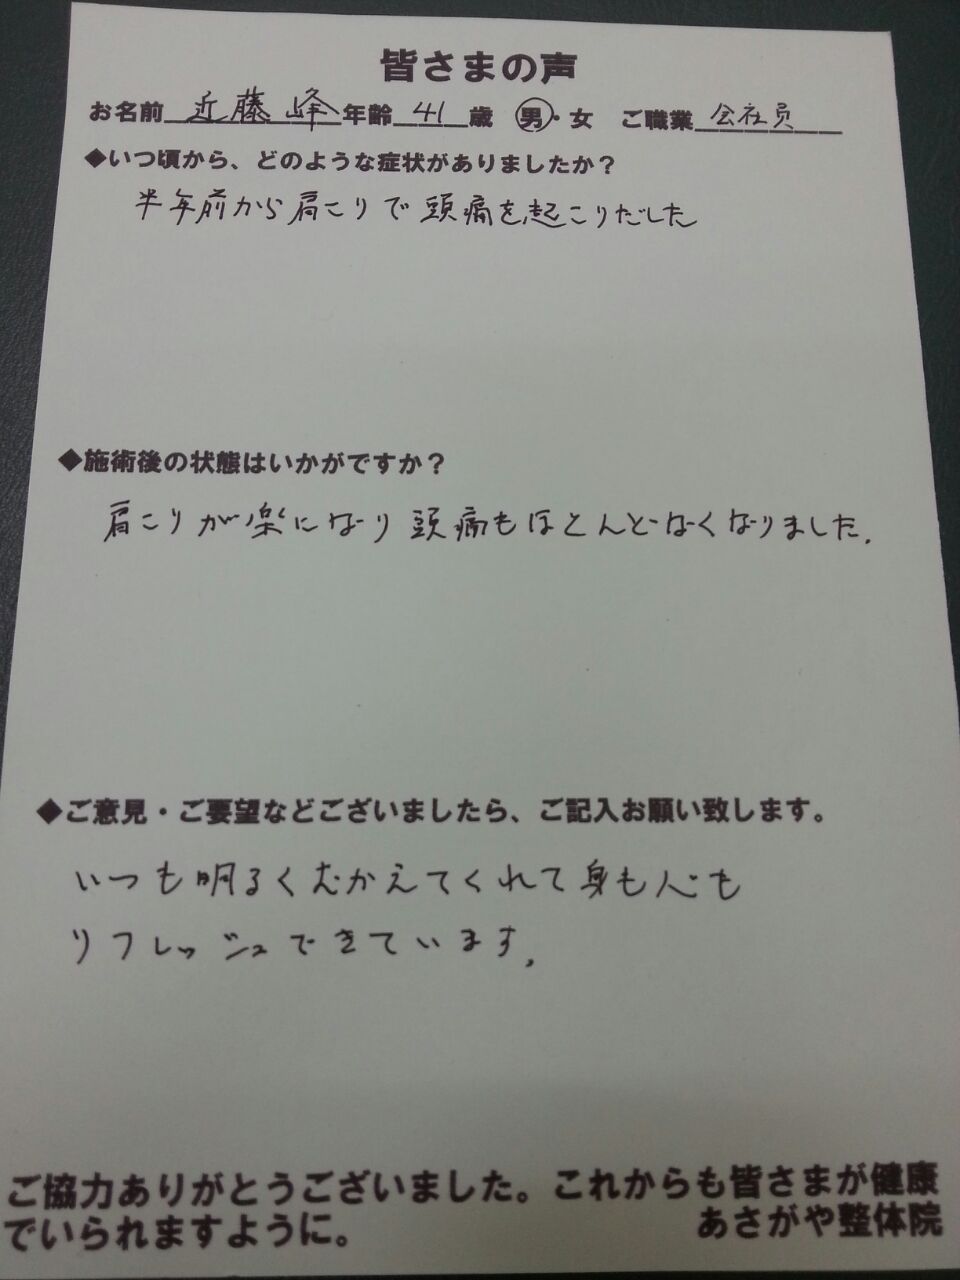 皆さまの声
お名前 近藤 峰 年齢 41 歳 男・女 ご職業 会社員
◆いつ頃から、どのような症状がありましたか？
半年前から肩こりで頭痛を起こりだした
◆施術後の状態はいかがですか？
肩こりが楽になり頭痛もほとんどなくなりました.
◆ご意見・ご要望などございましたら、ご記入お願い致します。
いつも明るくむかえてくれて身も心も
リフレッシュできています.
ご協力ありがとうございました。これからも皆さまが健康
でいられますように。 あさがや整体院